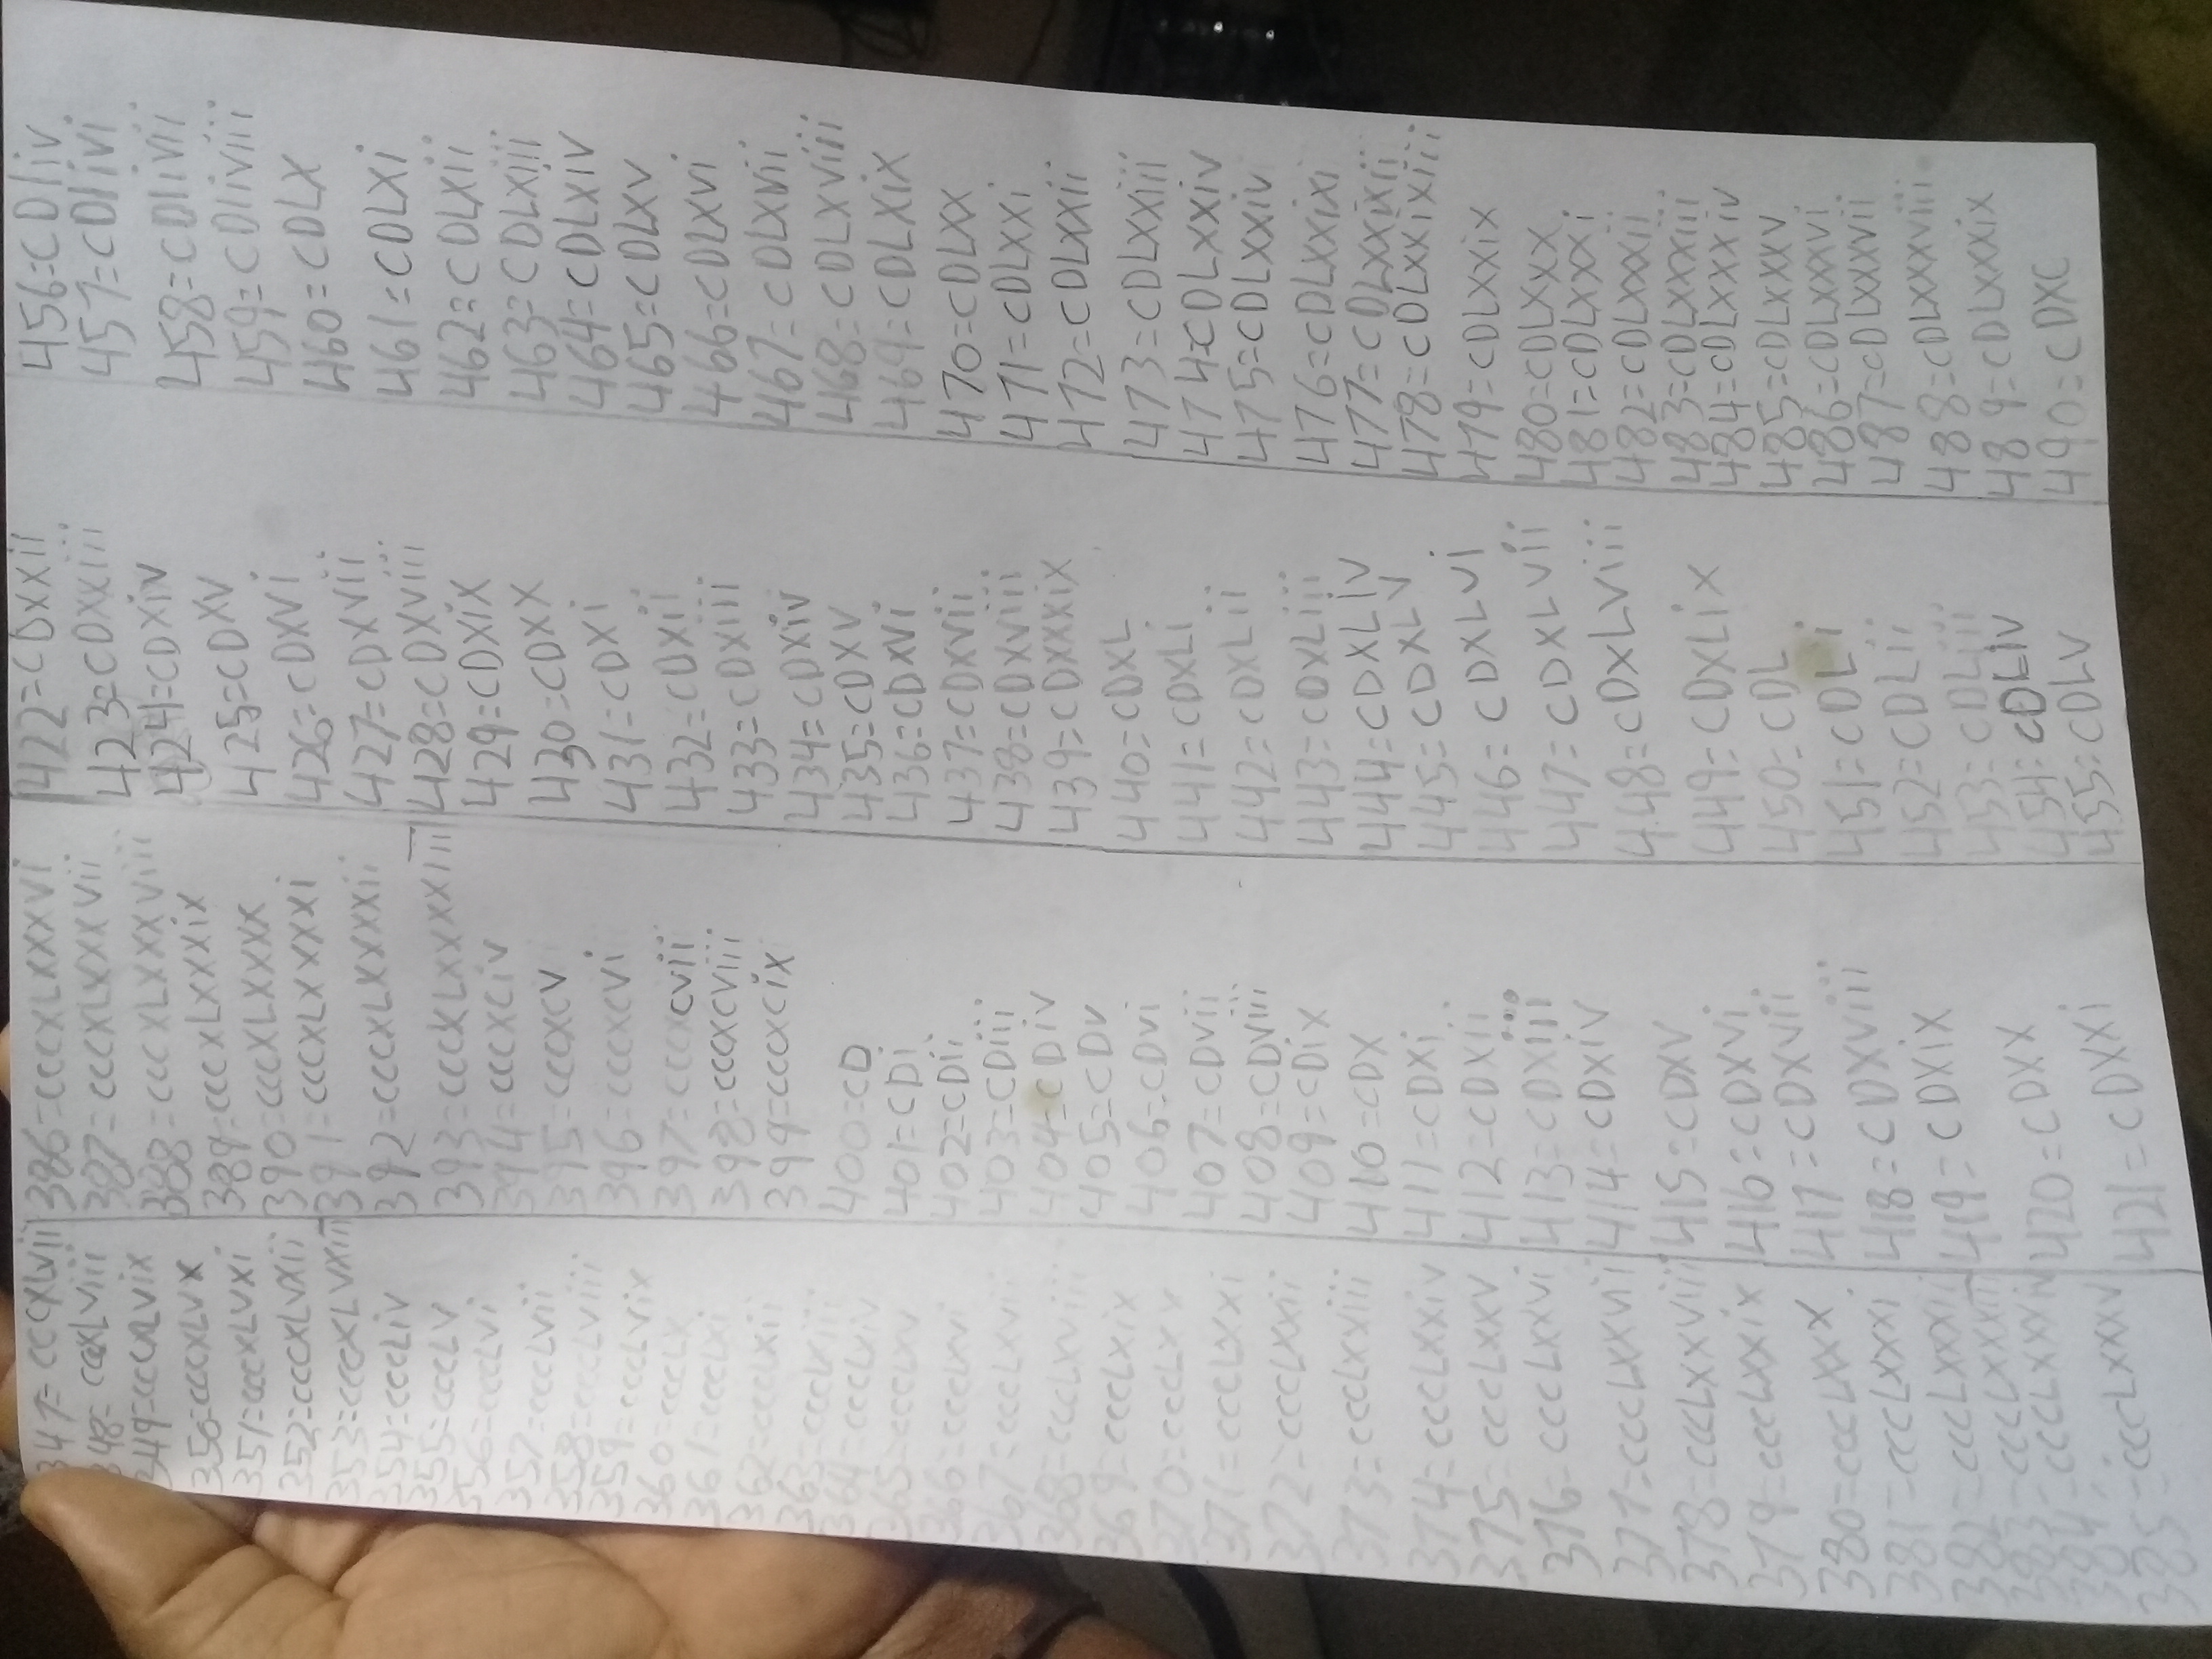 347=cccxLvii
348=cccxLviii
349=cccxLvix
350=cccxLvx
351=cccxLvxi
352=cccxLvxii
353=cccxLvxiii
354=cccLiv
355=cccLv
356=cccLvi
357=cccLvii
358=cccLviii
359=cccLvix
360=cccLx
361=cccLxi
362=cccLxii
363=cccLxiii
364=cccLxiv
365=cccLxv
366=cccLxvi
367=cccLxvii
368=cccLxviii
369=cccLxix
370=cccLxx
371=cccLxxi
372=cccLxxii
373=cccLxxiii
374=cccLxxiv
375=cccLxxv
376=cccLxxvi
377=cccLxxvii
378=cccLxxviii
379=cccLxxix
380=cccLxxx
381=cccLxxxi
382=cccLxxxii
383=cccLxxxiii
384=cccLxxxiv
385=cccLxxxv
386=cccxLxxxvi
387=cccxLxxxvii
388=cccxLxxxviii
389=cccxLxxxix
390=cccxLxxxx
391=cccxLxxxxi
392=cccxLxxxxii
393=cccxLxxxxiii
394=cccxciv
395=cccxcv
396=cccxcvi
397=cccxcvii
398=cccxcviii
399=cccxcix
400=cD
401=cDi
402=cDii
403=cDiii
404=cDiv
405=cDv
406=cDvi
407=cDvii
408=cDviii
409=cDix
410=cDX
411=cDXi
412=cDXii
413=cDXiii
414=cDXiv
415=cDXV
416=cDXvi
417=cDXvii
418=cDXviii
419=cDXiX
420=cDXX
421=cDXXi
422=cDXXii
423=cDXXiii
424=cDXiv
425=cDXV
426=cDXVi
427=cDXVii
428=cDXviii
429=cDXiX
430=cDXX
431=cDXi
432=cDXii
433=cDXiii
434=cDXiv
435=cDXV
436=cDXVi
437=cDXvii
438=cDXviii
439=cDXXXiX
440=cDXL
441=cDXLi
442=cDXLii
443=cDXLiii
444=cDXLiV
445=cDXLV
446=cDXLVi
447=cDXLVii
448=cDXLViii
449=cDXLiX
450=cDL
451=cDLi
452=cDLii
453=cDLiii
454=cDLiv
455=cDLV
456=cDliv
457=cDlivi
458=cDlivii
459=cDliviii
460=cDLX
461=cDLXi
462=cDLXii
463=cDLXiii
464=cDLXiV
465=cDLXV
466=cDLXVi
467=cDLXVii
468=cDLXViii
469=cDLXiX
470=cDLXX
471=cDLXXi
472=cDLXXii
473=cDLXXiii
474=cDLXXiV
475=cDLXXiv
476=cDLXXiXi
477=cDLXXiXii
478=cDLXXiXiii
479=cDLXXiX
480=cDLXXX
481=cDLXXXi
482=cDLXXXii
483=cDLXXXiii
484=cDLXXXiv
485=cDLXXXV
486=cDLXXXVi
487=cDLXXXVii
488=cDLXXXViii
489=cDLXXXiX
490=cDXC